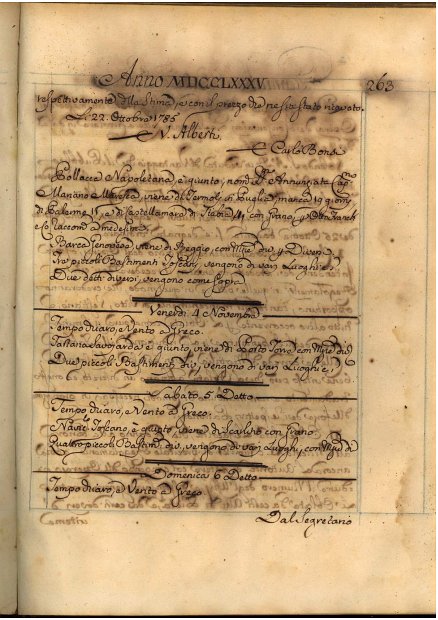 Anno MDCCLXXXV. 263
respettivamente della Stima, e con il prezzo che ne sia stato ritrovato.
Li 22. Ottobre 1785
V. Alberti
Carlo Bonsi
Pollacca Napoletana, è giunto, nom.
Mariano viene di Termoli in Puglia, manca 19 giorni
di Palermo e di Castellamare di Stabia con Grano, y
e Co. Racom. a medesimi.
Barca Genovese, viene di Reggio, con Mre. div. y Diversi.
Tre piccoli Bastimenti Toscani, vengono di vari Luoghi e
Due detti diversi, vengono come sopra
Venerdì 4 Novembre
Tempo vario, e Vento a Greco.
Tartana Savoiarda è giunto, viene di Porto Torre con Mre div
Due piccoli Bastimenti div, vengono di vari Luoghi e,
Sabato 5 Detto.
Tempo vario, e Vento a Greco.
Navic.lo Toscano, è giunto viene di Scarlino con Grano.
Quattro piccoli Bastim.ti div. vengono di vari Luoghi, con Mre di
Domenica 6 Detto
Tempo vario, e Vento a Greco
Dal Segretario